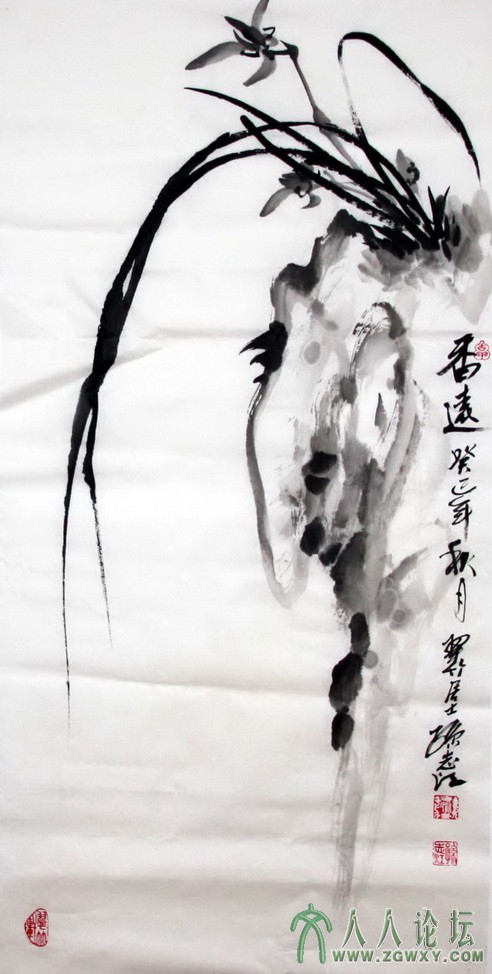 香遠
癸巳年秋月
翠竹居士張志江
人人论坛
WWW.ZGWXY.COM